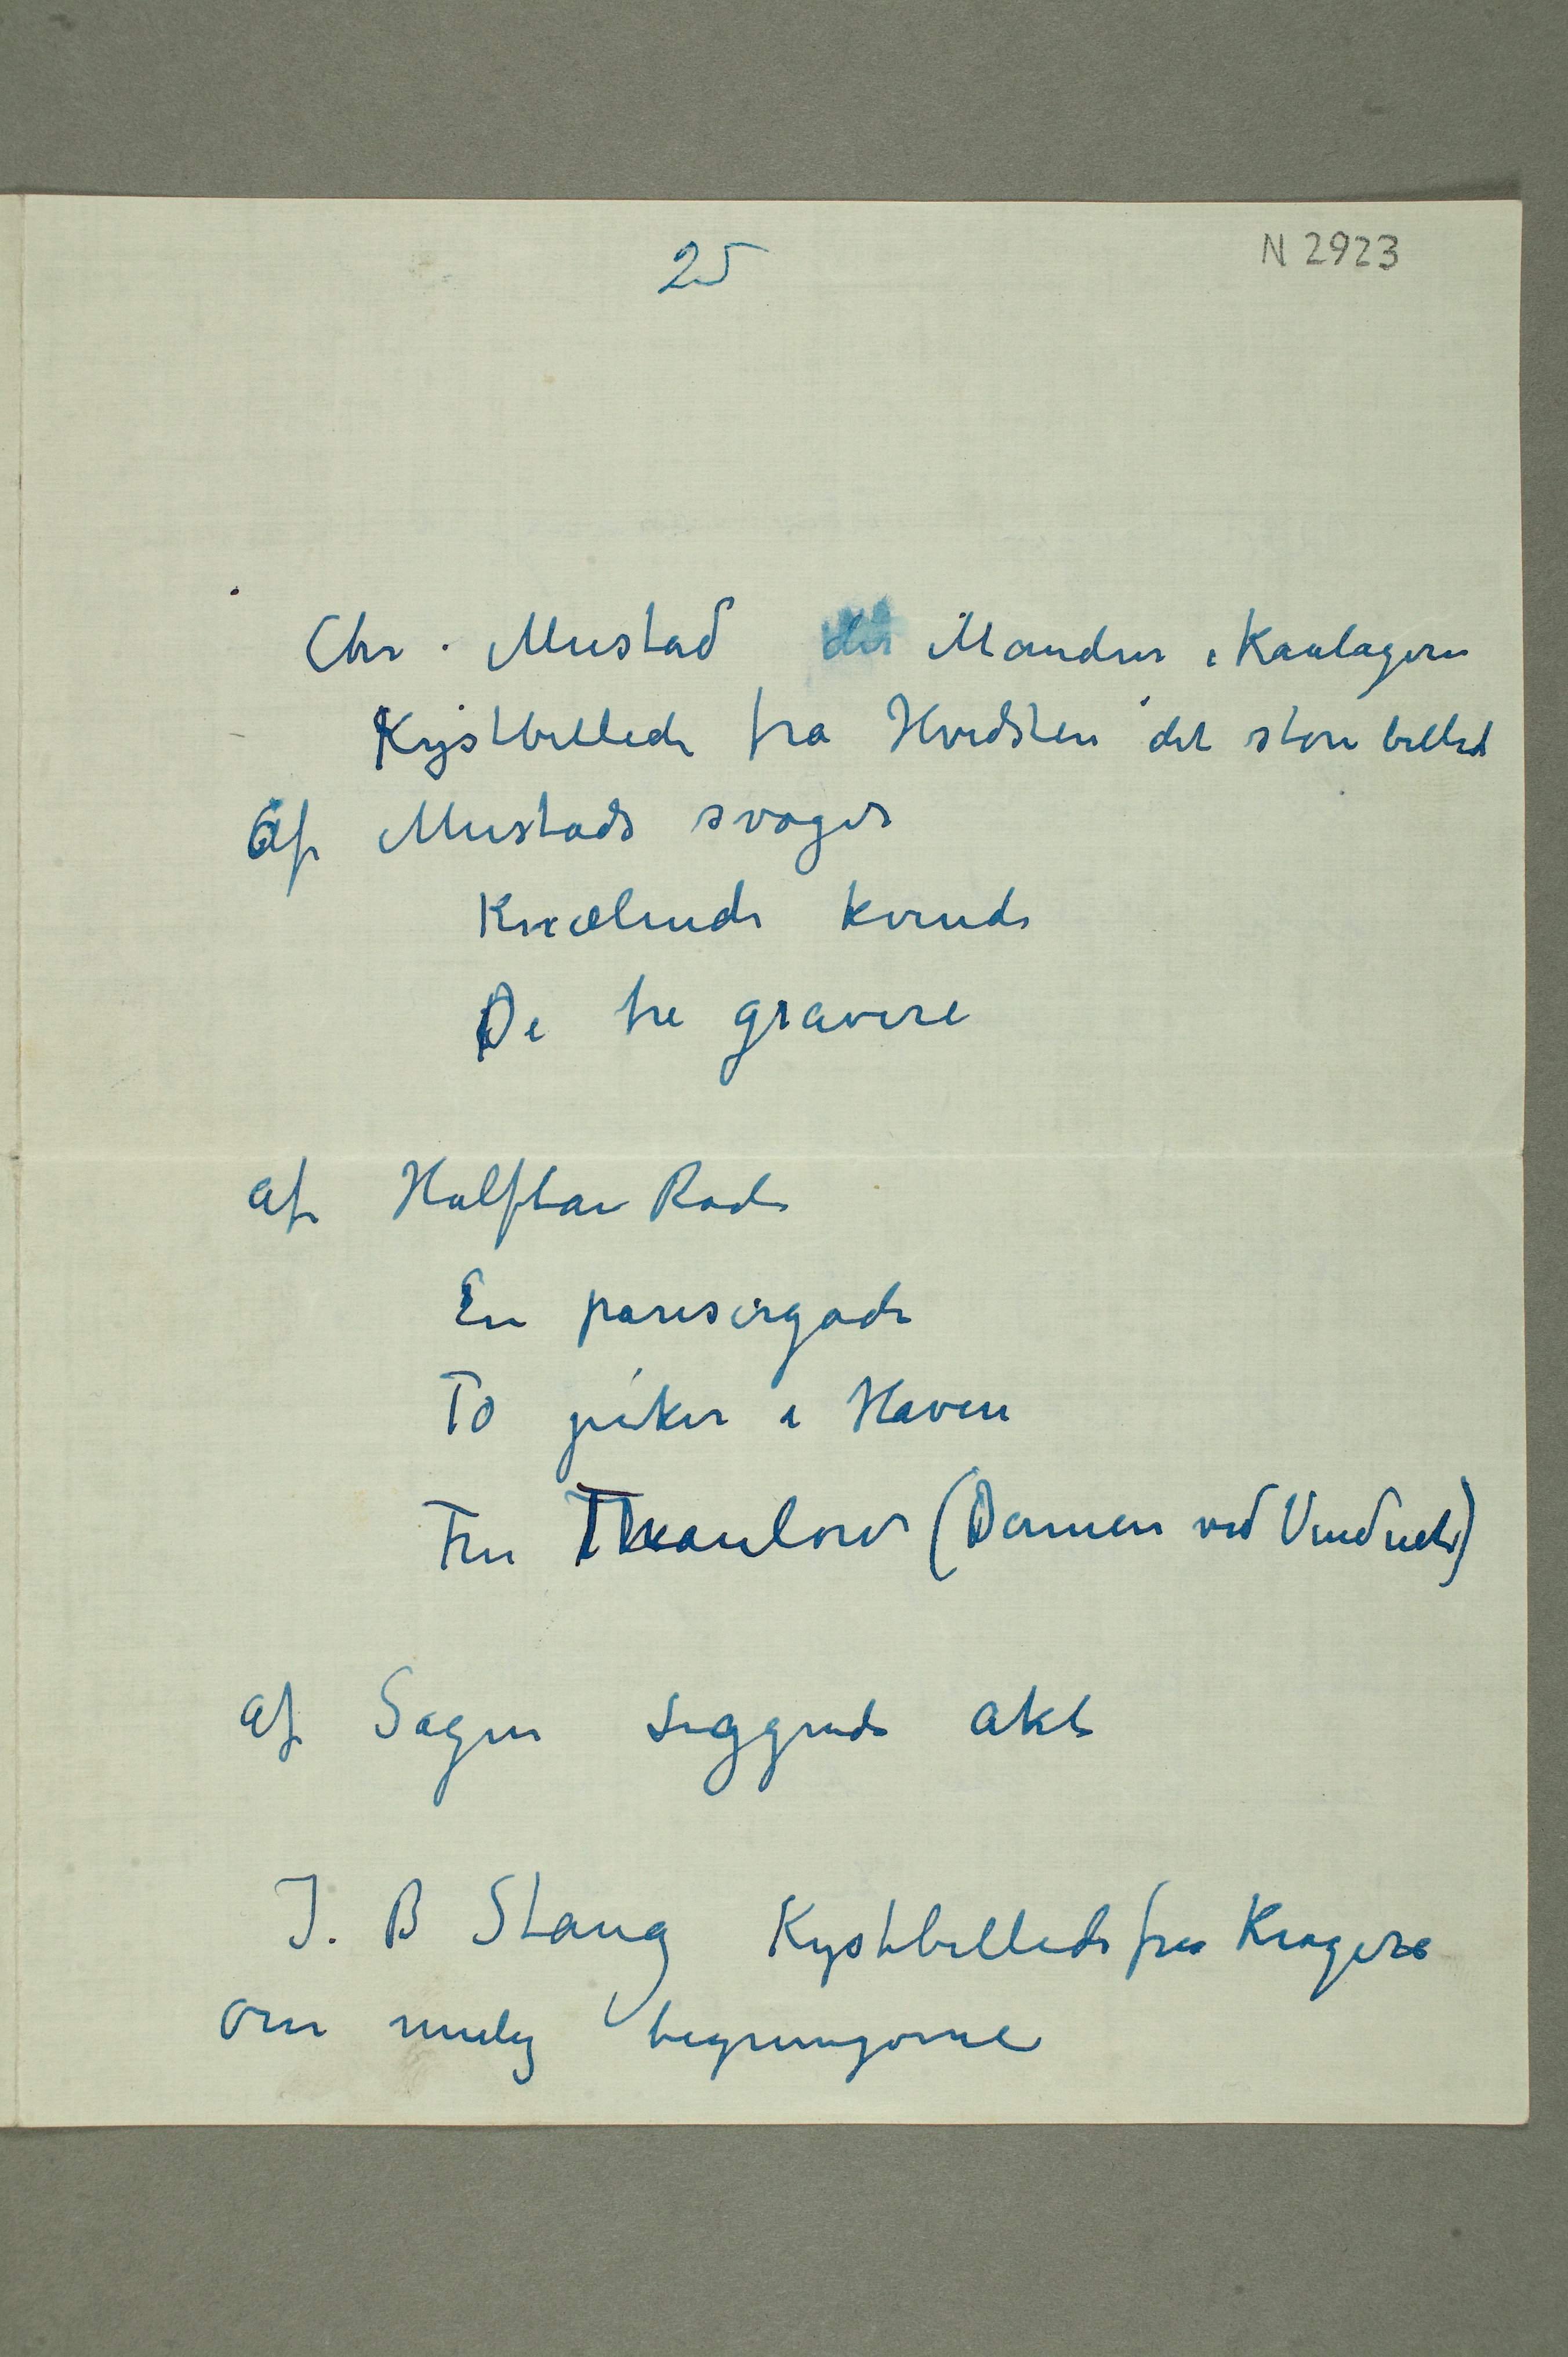 25
N 2923
Chr. Mustad Manden i Kaalageren
Kystbillede fra Hvidsten det store billed
Af Mustads svoger
Knælende kvinde
De tre gravere
af Halfdan Rode
En parisergade
To piker i Haven
Fru Thaulow (Damen ved Vinduet)
af Sagen liggende akt
J. B Stang Kystbillede fra Kragerø
om mulig tegningerne